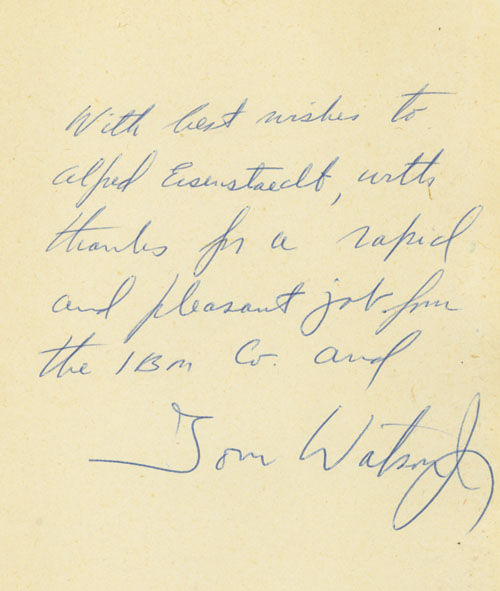 With best wishes to
Alfred Eisenstaedt, with
thanks for a rapid
and pleasant job from
the IBM Co. and
Tom Watson Jr